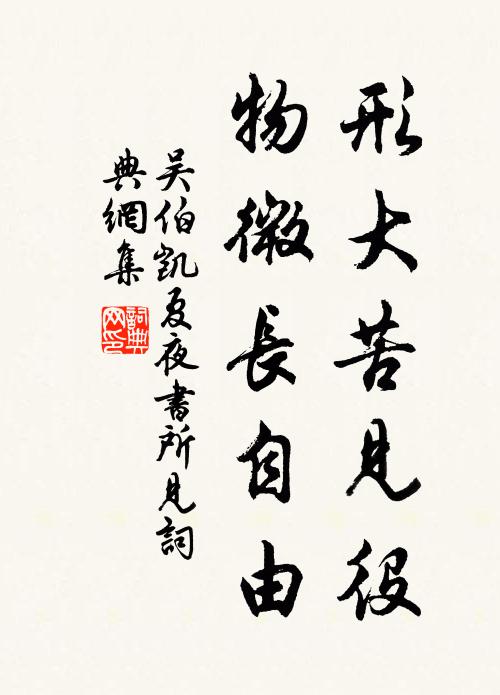 形大苦見役
物微長自由
吴伯凯夏夜書所見詞
典網集
詞典
网印